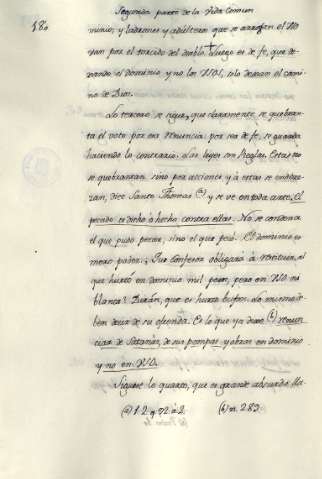 Segunda parte de la Vida Comun
180
minio; y ladrones y adulteros que se arrojan el Uso
van por el torcido del diablo. Luego es de fe, que de-
xando el dominio y no los Usos, solo dexan el cami-
no de Dios.
Lo tercero se sigue, que claramente se quebran-
ta el voto por esa renuncia: por ser de fe, se guarda
haciendo lo contrario. Las leyes son Reglas. Estas no
se quebrantan sino por acciones y á estas se endere-
zan, dice Santo Thomas (a) y se ve en toda ante. El
pecado es dicho ó hecho contra ellas. No se condena
el que pudo pecar, sino el que pecó. El dominio es
mero poder; Que Confesor obligará á restituir, al
que hurtó en dominio mil pesos, pero en Uso no
blanca? Dirán, que es hurto bufon. Lo mismo de-
ben decir de su ofrenda. Es lo que ya dixe (b) renun-
ciar de Satanas, de sus pompas y obras en dominio
y no en Uso.
Siguese lo quarto, que es grande absurdo lla-
(a) 1. 2. q. 72. a. 2. (b) n. 283.